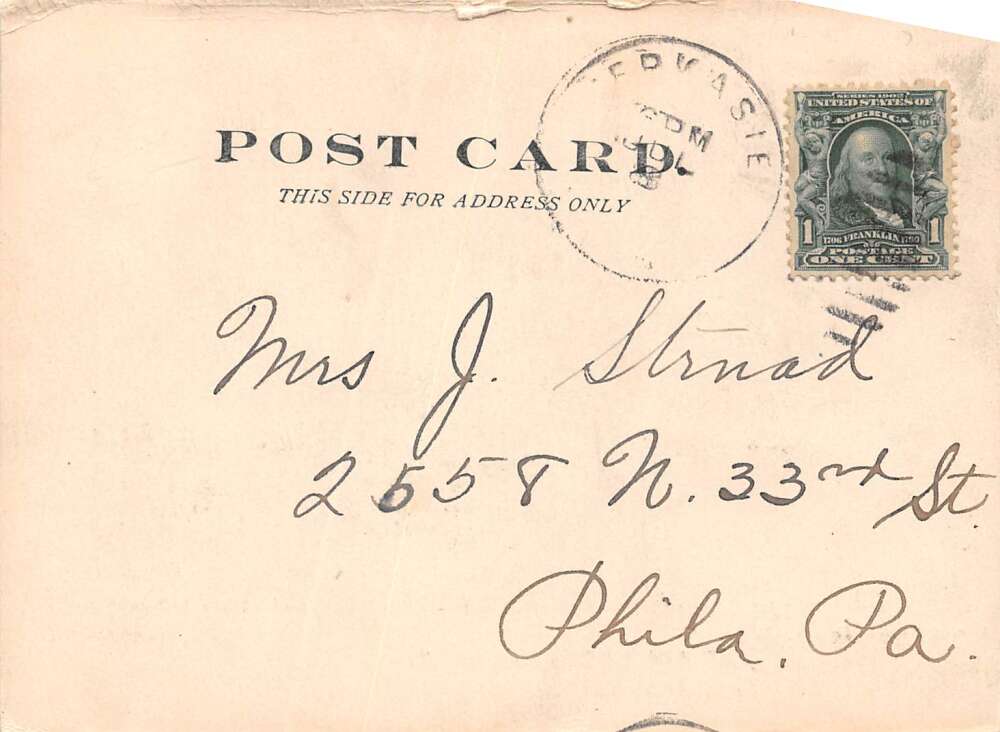 POST CARD.
THIS SIDE FOR ADDRESS ONLY
PM
SERIES 1902
UNITED STATES OF
AMERICA
1 1706 FRANKLIN 1790 1
POSTAGE
ONE CENT
Mrs J. Strnad
2558 N. 33rd St.
Phila. Pa.